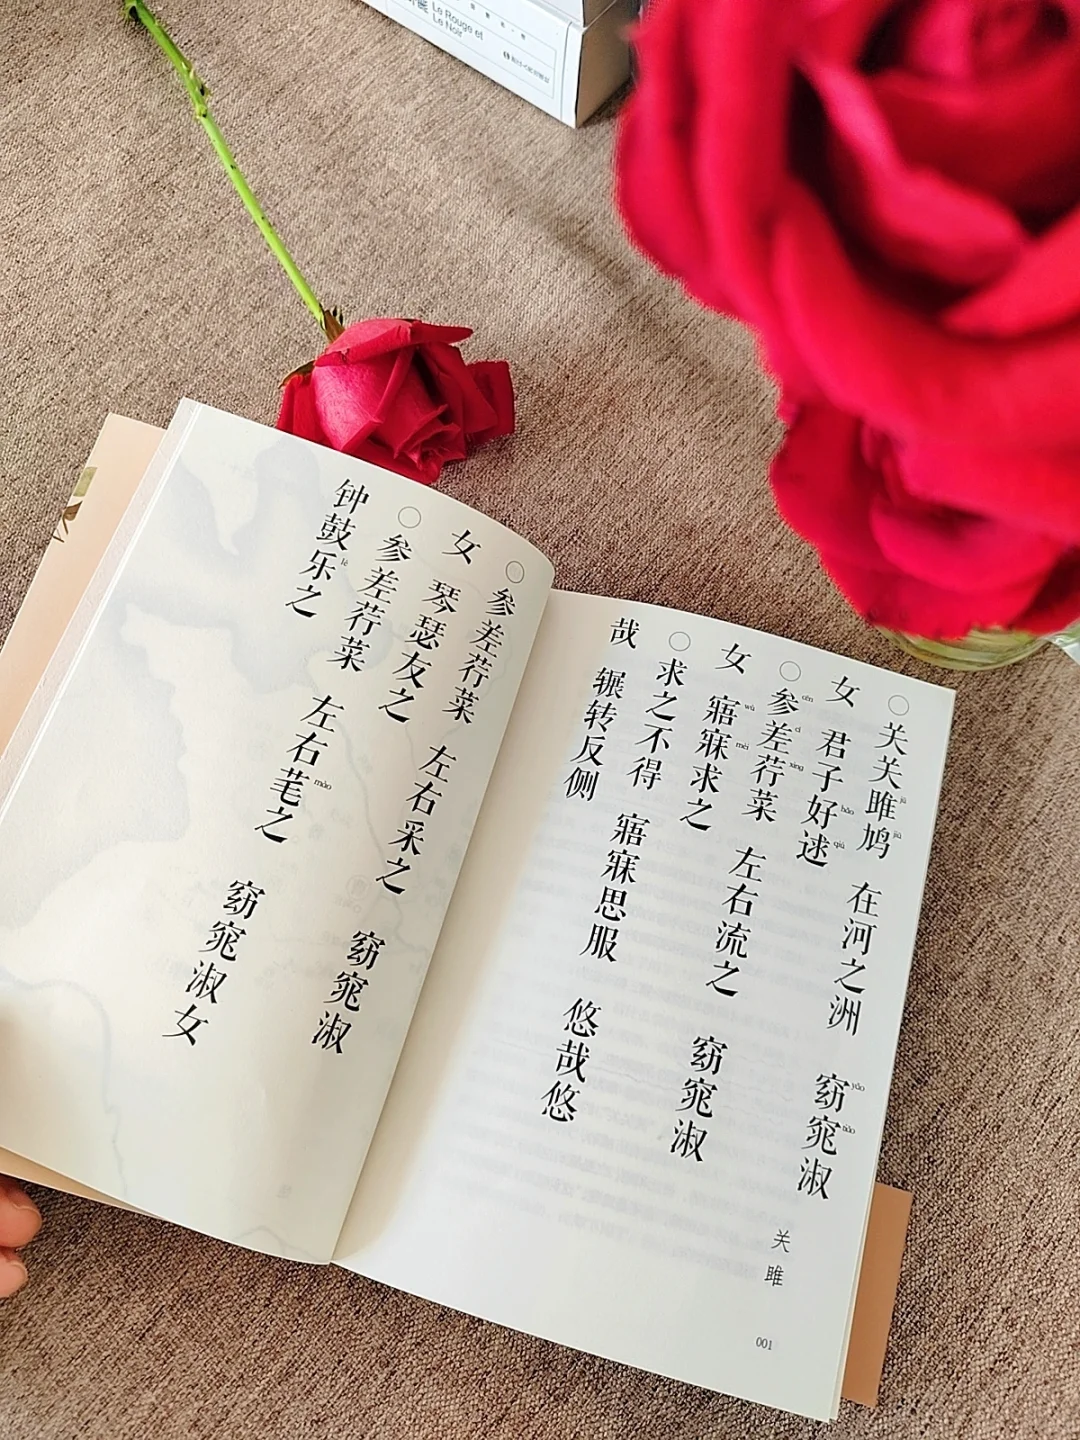 Le Rouge et
Le Noir
○关关雎鸠 在河之洲 窈窕淑
女 君子好逑
○参差荇菜 左右流之 窈窕淑
女 寤寐求之
○求之不得 寤寐思服 悠哉悠
哉 辗转反侧
关雎
001
○参差荇菜 左右采之 窈窕淑
女 琴瑟友之
○参差荇菜 左右芼之 窈窕淑女
钟鼓乐之